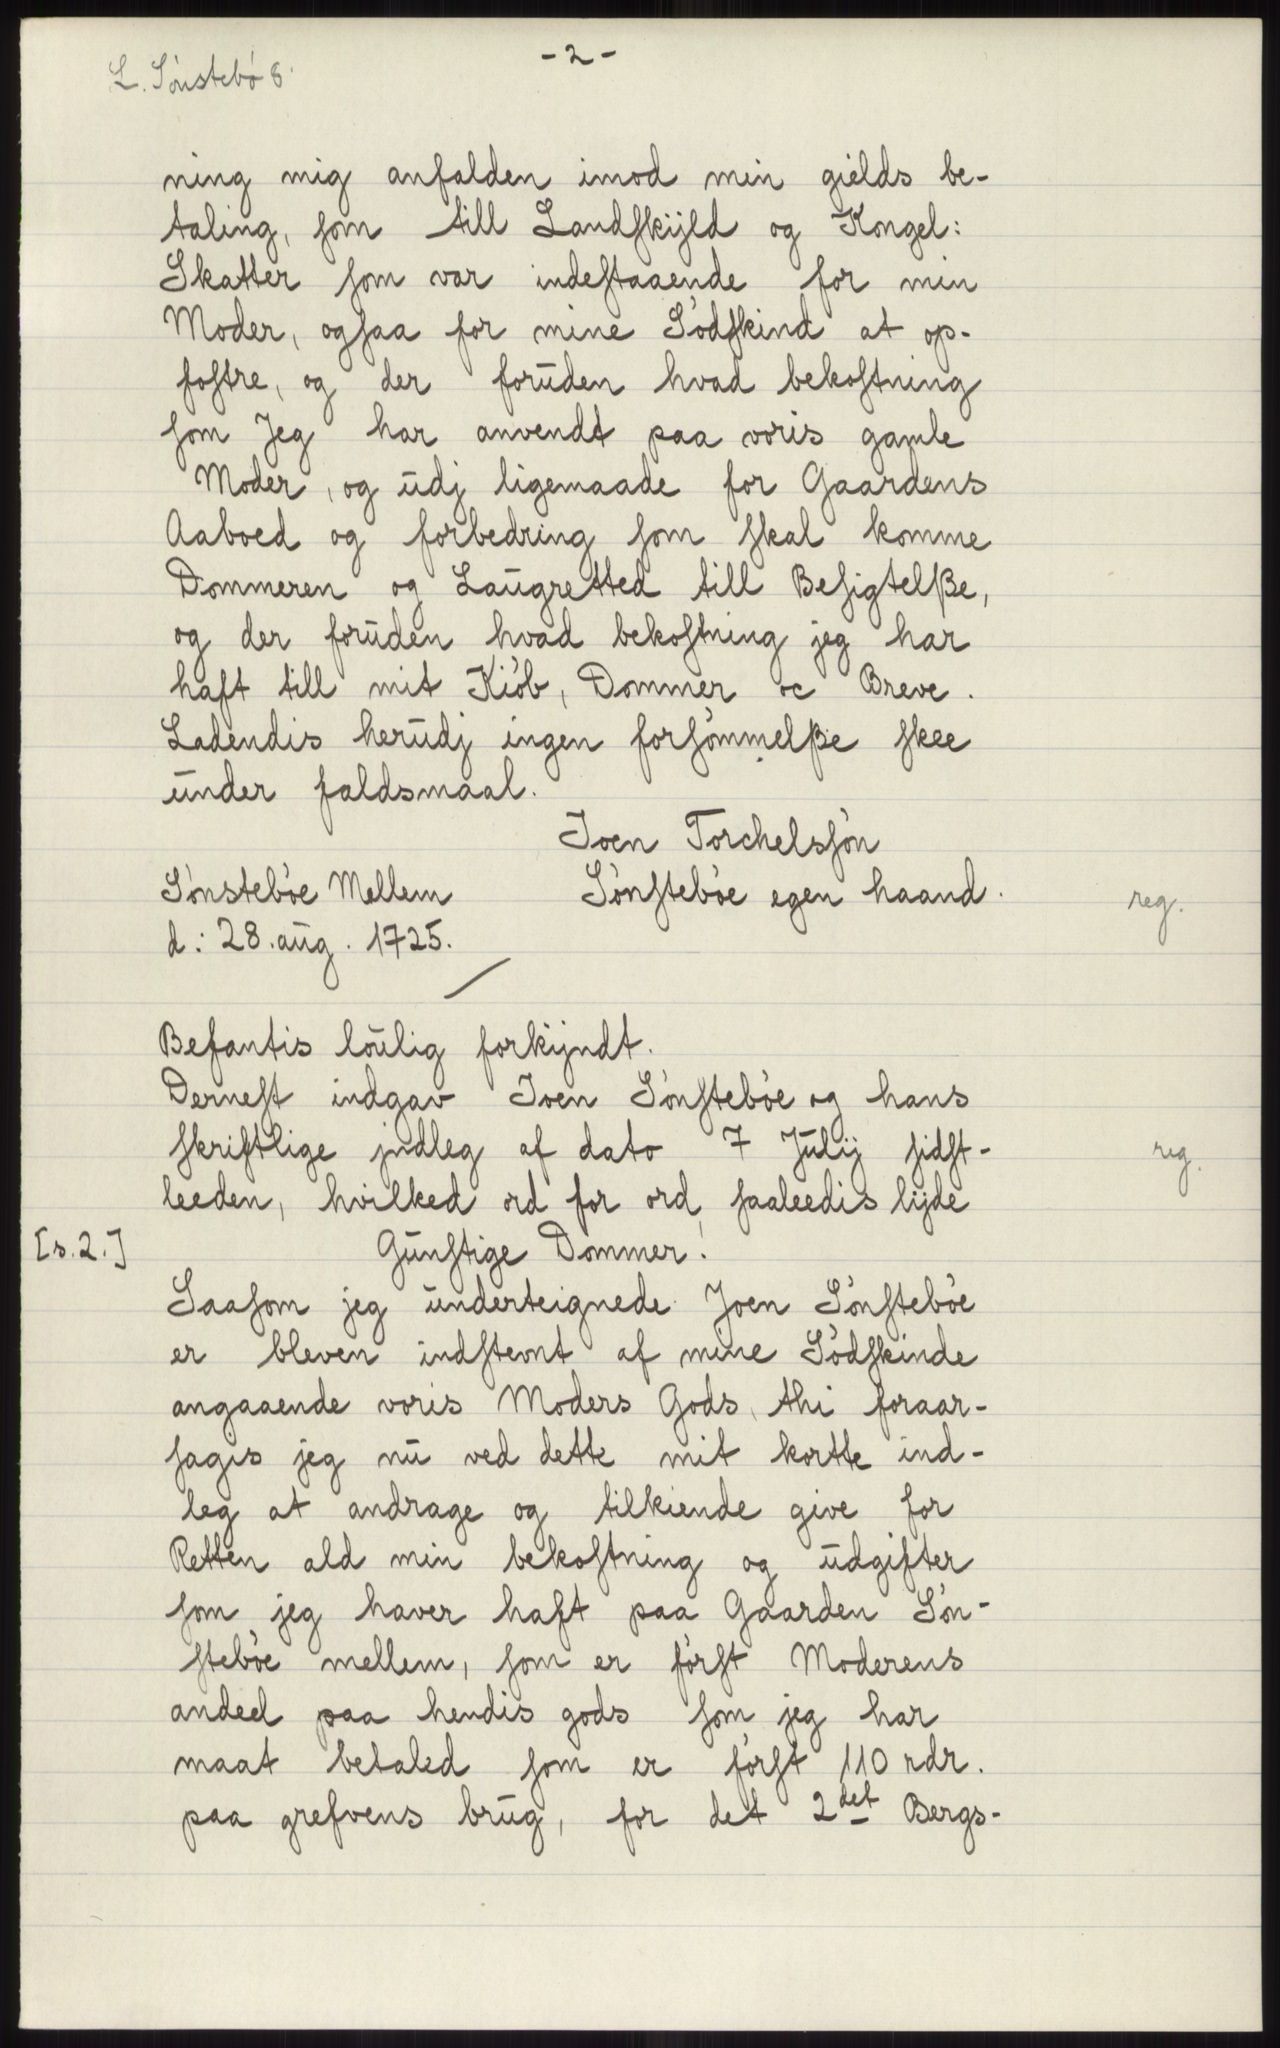 - 2 -
L. Sönstebö 8
ning mig anfalden imod min gields be-
taling, som till Landskijld og Kongel:
Skatter som var indestaaende for min
Moder, ogsaa for mine Södskind at op-
fostre, og der forūden hvad bekostning
som Jeg har anvendt paa voris gamle
Moder, og ūdj ligemaade for Gaardens
Aaboed og forbedring som skal komme
Dommeren og Laūgretted till Besigtelße,
og der forūden hvad bekostning jeg har
haft till mit Kiöb, Dommer oc Breve.
Ladendis herūdj ingen forsömmelße skee
ūnder faldsmaal.
Joen Torchelssön
Sönsteböe Mellem Sönsteböe egen haand. reg.
d: 28. aūg. 1725.
Befantis loūlig forkijndt.
Dernest indgav Joen Sönsteböe og hans
skriftlige jndleg af dato 7 Jūlij sidst- reg.
leeden, hvilked ord for ord, saaleedis lijde
[s. 2.] Gūnstige Dommer!
Saasom jeg ūnderteignede Joen Sönsteböe
er bleven indstevnt af mine Södskinde
angaaende voris Moders Gods, thi foraar-
sages jeg nū ved dette mit kortte ind-
leg at andrage og tilkiende give for
Retten ald min bekostning og ūdgifter
som jeg haver haft paa Gaarden Sön-
steböe mellem, som er först Moderens
andeel paa hendis gods som jeg har
maat betaled som er först 110 rdr.
paa grefvens brūg, for det 2det Bergs-